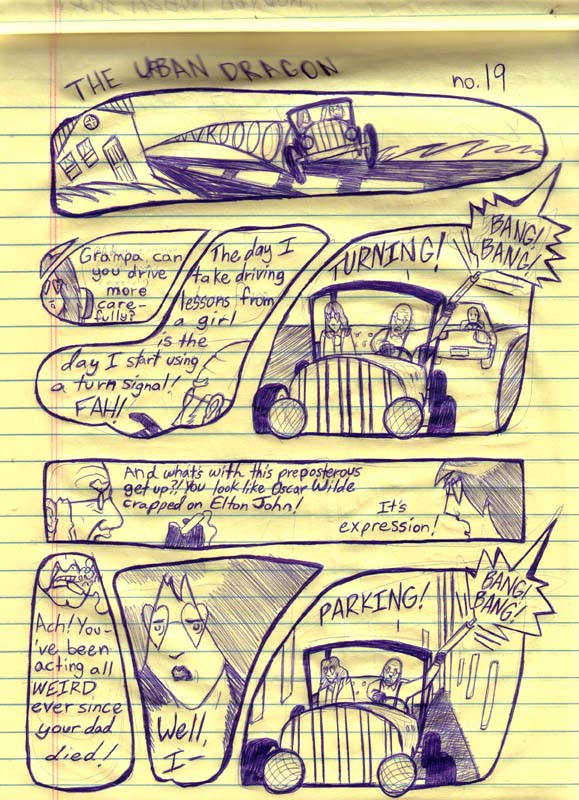 THE URBAN DRAGON
no. 19
VROOOOM
Grampa, can
you drive
more
care-
fully?
The day I
take driving
lessons from
a girl
is the
day I start using
a turn signal!
FAH!
TURNING!
BANG!
BANG!
And what's with this preposterous
get up?! You look like Oscar Wilde
crapped on Elton John!
It's
expression!
Ach! You-
've been
acting all
WEIRD
ever since
your dad
died!
Well,
I—
PARKING!
BANG!
BANG!